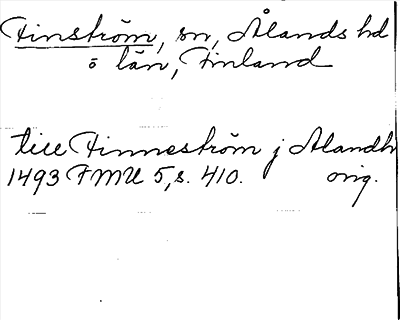 Finström, sn, Ålands hd
o län, Finland
till Finneström j Alandh
1493 FMU 5, s. 410. orig.